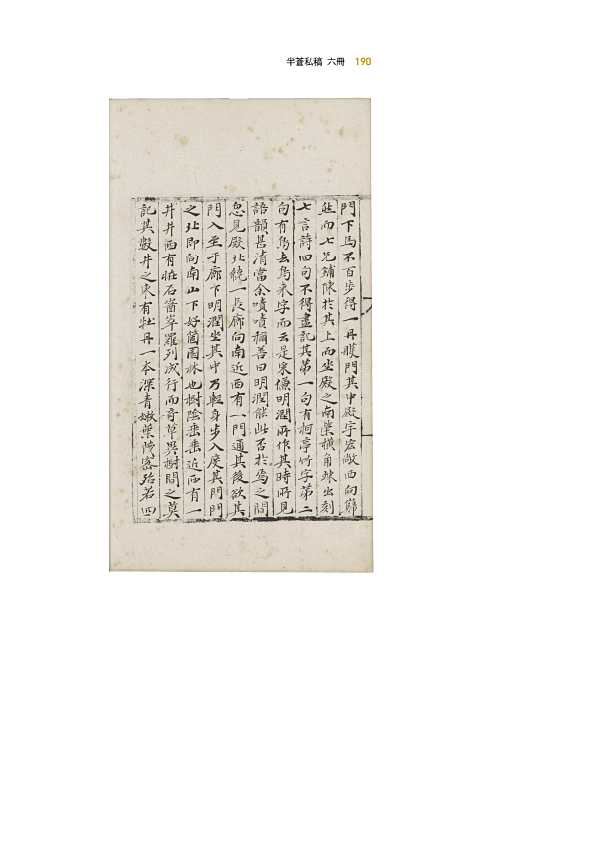 半蒼私稿 六冊 190
門下馬不百步得一丹雘門其中殿宇宏敞西向鄭
然而七尺鋪陳於其上而坐殿之南業橫角球出刻
七言詩四句不得盡記其第一句有柯亭竹字第二
句有鳥去鳥来字而云是宋傔明潤所作其時所見
語韻甚清當余嘖嘖稱善曰明潤能此否於焉之間
忽見殿北繞一長廊向南近西有一門通其後欲其
門入至于廊下明潤坐其中乃輕身步入度其門門
之北即向南山下好箇園林也樹陰垂垂近西有一
井井西有恠石嶜崒羅列成行而奇草異樹間之莫
記其數井之東有牡丹一本深青嫩葉陵密殆若四